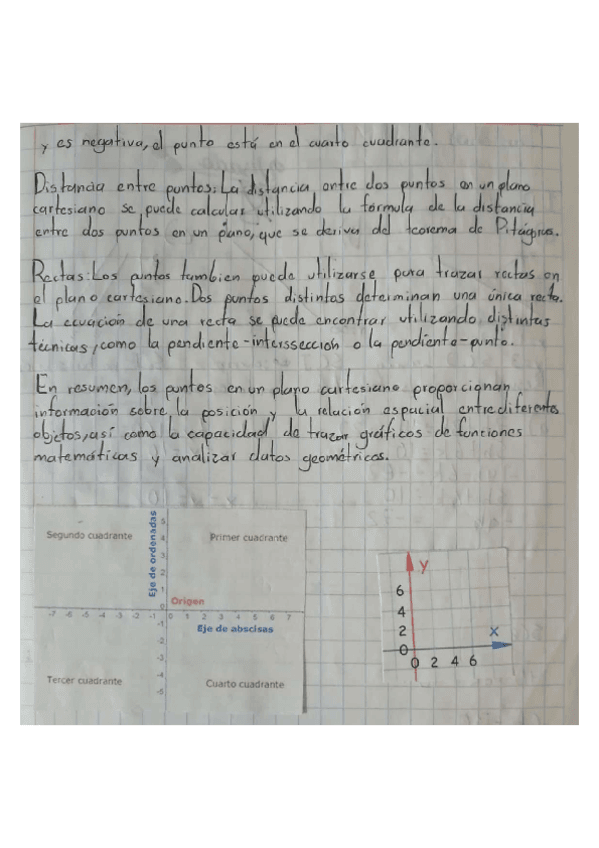 y es negativa, el punto está en el cuarto cuadrante.
Distancia entre puntos: La distancia entre dos puntos en un plano
cartesiano se puede calcular utilizando la fórmula de la distancia
entre dos puntos en un plano, que se deriva del teorema de Pitágoras.
Rectas: Los puntos tambien puede utilizarse para trazar rectas en
el plano cartesiano. Dos puntos distintos determinan una única recta.
La ecuación de una recta se puede encontrar utilizando distintas
técnicas, como la pendiente-interssección o la pendiente-punto.
En resumen, los puntos en un plano cartesiano proporcionan
información sobre la posición y la relación espacial entre diferentes
objetos, así como la capacidad de trazar gráficos de funciones
matemáticas y analizar datos geométricos.
Segundo cuadrante
Eje de ordenadas
Primer cuadrante
5
4
3
2
1
0
Origen
-7 -6 -5 -4 -3 -2 -1 0 1 2 3 4 5 6 7
Eje de abscisas
-1
-2
-3
-4
-5
Tercer cuadrante
Cuarto cuadrante
y
6
4
2
0
x
0 2 4 6